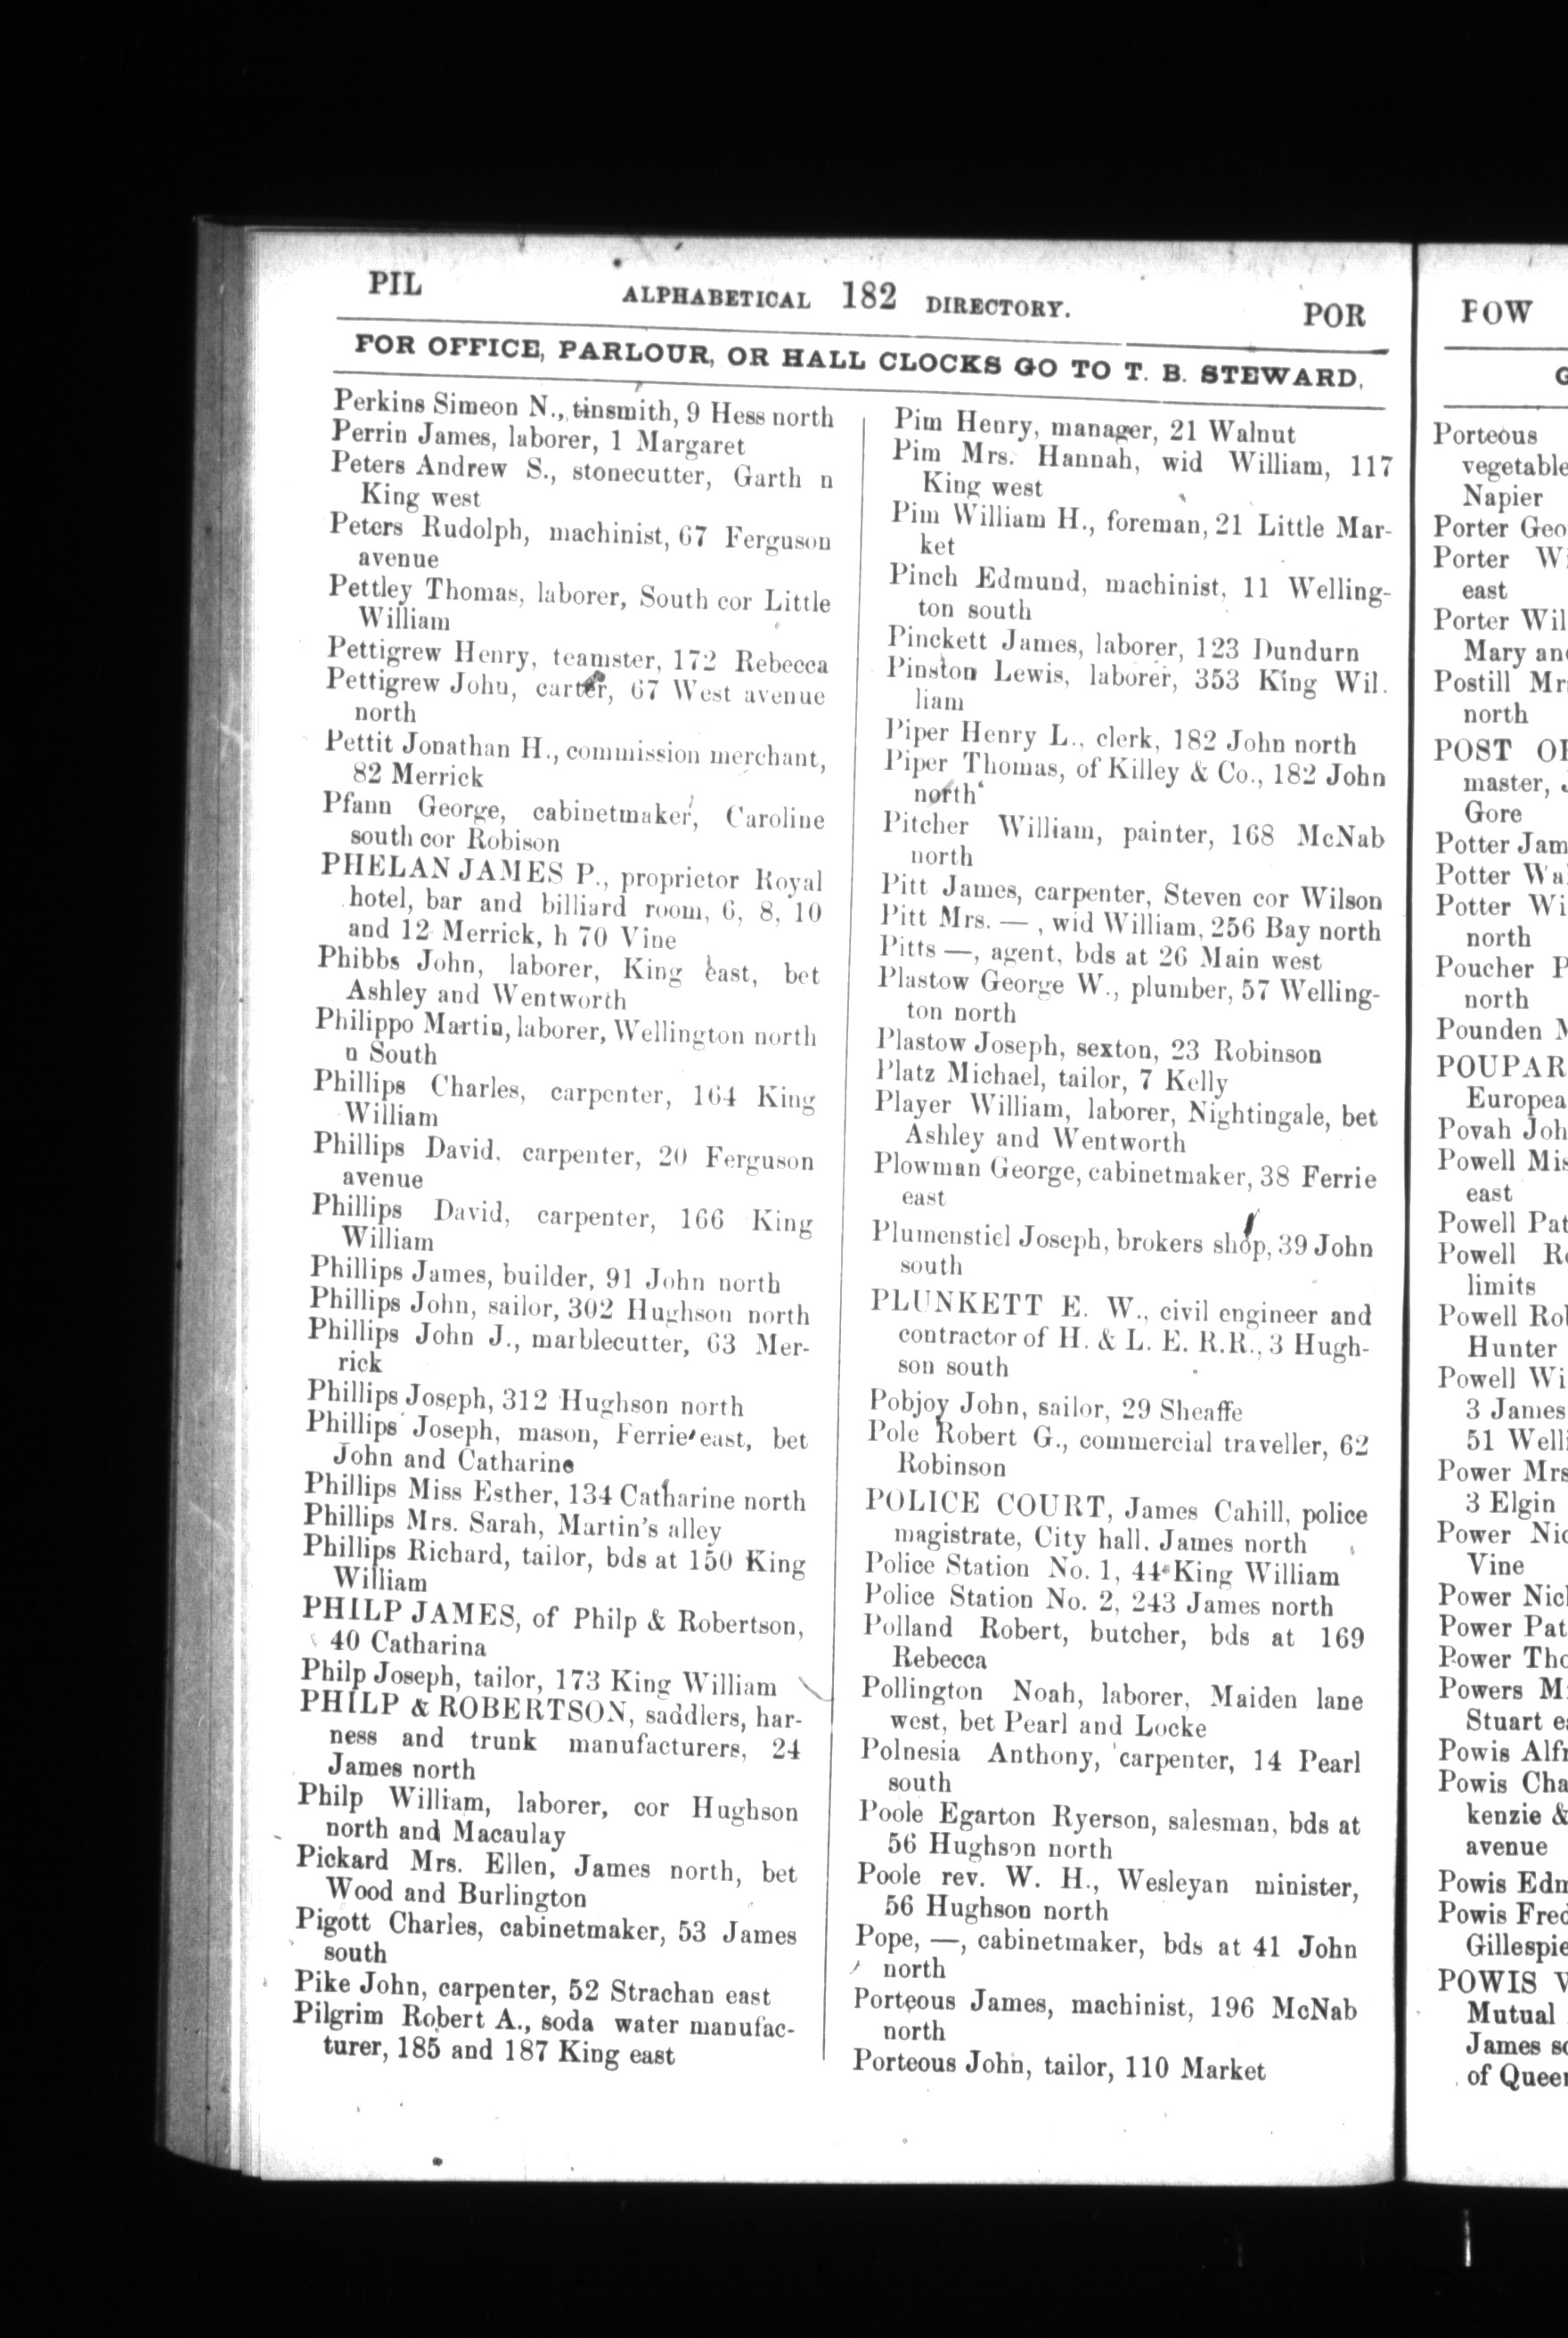 PIL ALPHABETICAL 182 DIRECTORY. POR
FOR OFFICE, PARLOUR, OR HALL CLOCKS GO TO T. B. STEWARD,
Perkins Simeon N., tinsmith, 9 Hess north
Perrin James, laborer, 1 Margaret
Peters Andrew S., stonecutter, Garth n
King west
Peters Rudolph, machinist, 67 Ferguson
avenue
Pettley Thomas, laborer, South cor Little
William
Pettigrew Henry, teamster, 172 Rebecca
Pettigrew John, carter, 67 West avenue
north
Pettit Jonathan H., commission merchant,
82 Merrick
Pfann George, cabinetmaker, Caroline
south cor Robison
PHELAN JAMES P., proprietor Royal
hotel, bar and billiard room, 6, 8, 10
and 12 Merrick, h 70 Vine
Phibbs John, laborer, King east, bet
Ashley and Wentworth
Philippo Martin, laborer, Wellington north
n South
Phillips Charles, carpenter, 164 King
William
Phillips David, carpenter, 20 Ferguson
avenue
Phillips David, carpenter, 166 King
William
Phillips James, builder, 91 John north
Phillips John, sailor, 302 Hughson north
Phillips John J., marblecutter, 63 Mer-
rick
Phillips Joseph, 312 Hughson north
Phillips Joseph, mason, Ferrie east, bet
John and Catharine
Phillips Miss Esther, 134 Catharine north
Phillips Mrs. Sarah, Martin's alley
Phillips Richard, tailor, bds at 150 King
William
PHILP JAMES, of Philp & Robertson,
40 Catharina
Philp Joseph, tailor, 173 King William
PHILP & ROBERTSON, saddlers, har-
ness and trunk manufacturers, 24
James north
Philp William, laborer, cor Hughson
north and Macaulay
Pickard Mrs. Ellen, James north, bet
Wood and Burlington
Pigott Charles, cabinetmaker, 53 James
south
Pike John, carpenter, 52 Strachan east
Pilgrim Robert A., soda water manufac-
turer, 185 and 187 King east
Pim Henry, manager, 21 Walnut
Pim Mrs. Hannah, wid William, 117
King west
Pim William H., foreman, 21 Little Mar-
ket
Pinch Edmund, machinist, 11 Welling-
ton south
Pinckett James, laborer, 123 Dundurn
Pinston Lewis, laborer, 353 King Wil.
liam
Piper Henry L., clerk, 182 John north
Piper Thomas, of Killey & Co., 182 John
north
Pitcher William, painter, 168 McNab
north
Pitt James, carpenter, Steven cor Wilson
Pitt Mrs. — , wid William, 256 Bay north
Pitts —, agent, bds at 26 Main west
Plastow George W., plumber, 57 Welling-
ton north
Plastow Joseph, sexton, 23 Robinson
Platz Michael, tailor, 7 Kelly
Player William, laborer, Nightingale, bet
Ashley and Wentworth
Plowman George, cabinetmaker, 38 Ferrie
east
Plumenstiel Joseph, brokers shop, 39 John
south
PLUNKETT E. W., civil engineer and
contractor of H. & L. E. R.R., 3 Hugh-
son south
Pobjoy John, sailor, 29 Sheaffe
Pole Robert G., commercial traveller, 62
Robinson
POLICE COURT, James Cahill, police
magistrate, City hall, James north
Police Station No. 1, 44 King William
Police Station No. 2, 243 James north
Polland Robert, butcher, bds at 169
Rebecca
Pollington Noah, laborer, Maiden lane
west, bet Pearl and Locke
Polnesia Anthony, carpenter, 14 Pearl
south
Poole Egarton Ryerson, salesman, bds at
56 Hughson north
Poole rev. W. H., Wesleyan minister,
56 Hughson north
Pope, —, cabinetmaker, bds at 41 John
north
Porteous James, machinist, 196 McNab
north
Porteous John, tailor, 110 Market
POW
G
Porteous
vegetable
Napier
Porter Geo
Porter Wi
east
Porter Wil
Mary and
Postill Mr
north
POST OF
master, J
Gore
Potter Jam
Potter Wa
Potter Wi
north
Poucher P
north
Pounden M
POUPAR
Europea
Povah Joh
Powell Mis
east
Powell Pat
Powell Ro
limits
Powell Rol
Hunter
Powell Wi
3 James
51 Welli
Power Mrs
3 Elgin
Power Nic
Vine
Power Nicl
Power Pat
Power Tho
Powers M
Stuart ea
Powis Alfr
Powis Cha
kenzie &
avenue
Powis Edm
Powis Fred
Gillespie
POWIS V
Mutual
James so
of Queen